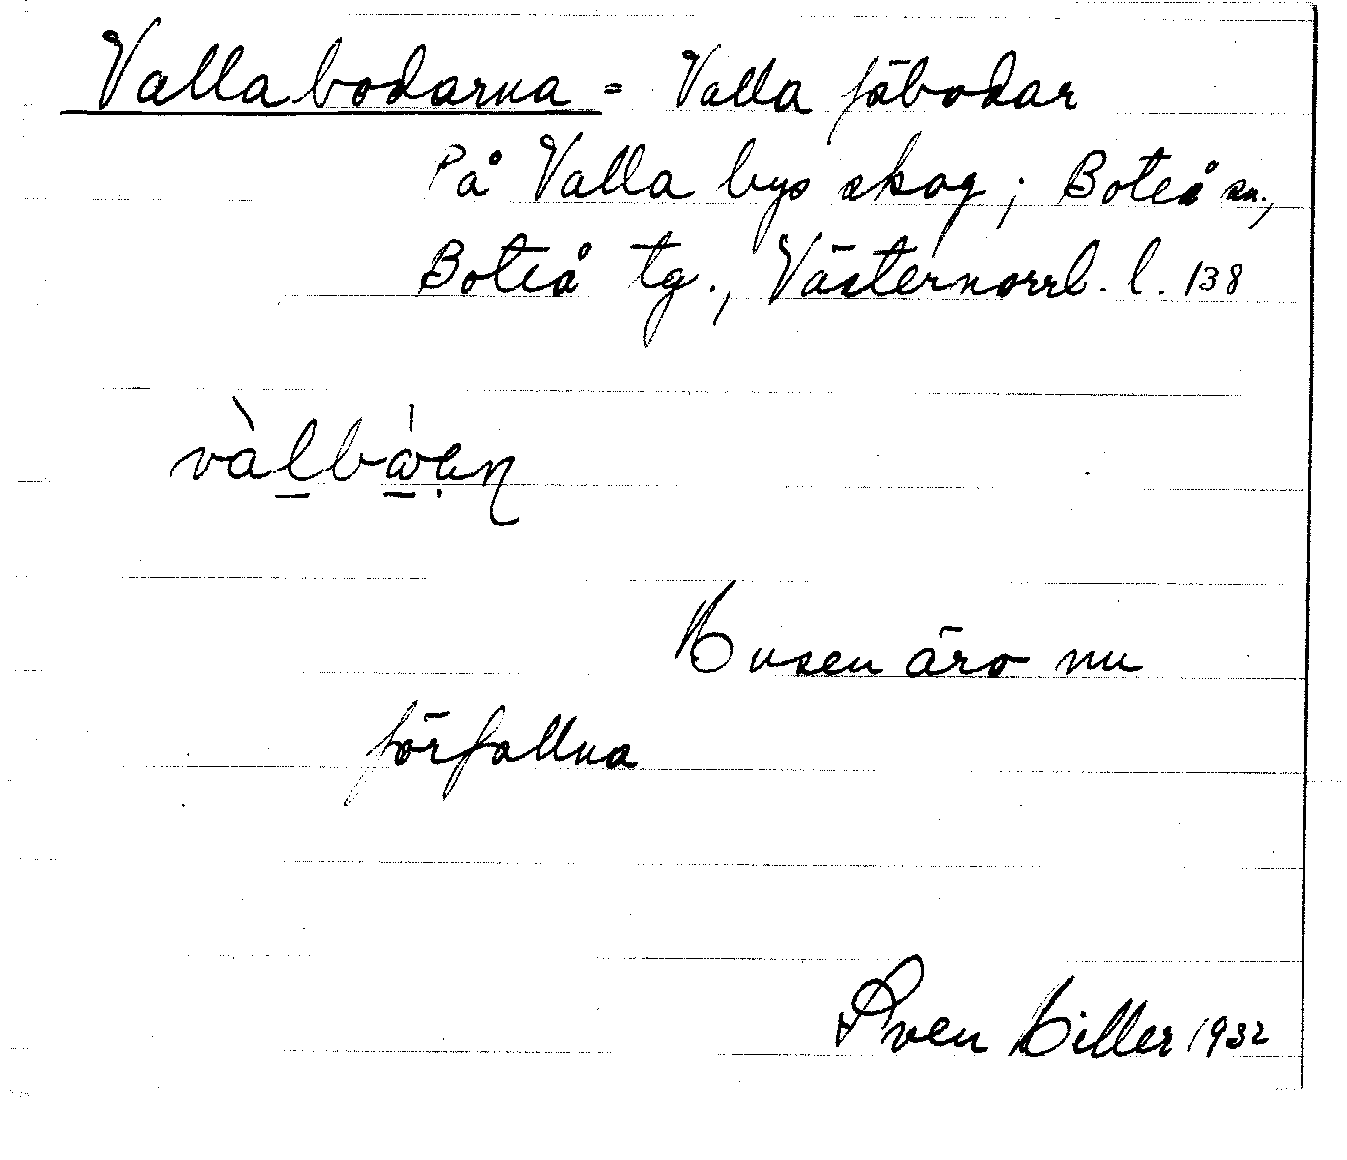 Vallabodarna = Valla fäbodar
På Valla bys skog; Boteå sn.,
Boteå tg., Västernorrl. l. 138
Husen äro nu
förfallna
Sven Hiller 1932